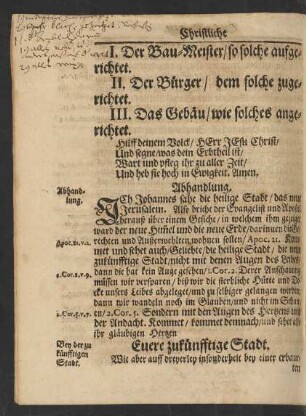 Christliche
I. Der Bau-Meister/ so solche aufge-
richtet.
II. Der Bürger/ dem solche zuge-
richtet.
III. Das Gebäu/ wie solches ange-
richtet.
Hilff deinem Volck/ HErr JEsu Christ/
Und segne/ was dein Erbtheil ist/
Wart und pfleg ihr zu aller Zeit/
Und heb sie hoch in Ewigkeit. Amen.
Abhandlung.
Abhand-
lung.
ICh Johannes sahe die heilige Stadt/ das neue
Jerusalem. Also bricht der Evangelist und
herauß über einem Gesicht/ in welchem ihm gezeiget
ward der neue Himmel und die neue Erde/ darinnen die
rechten und Außerwehlten wohnen sollen/ Apoc. 21. Kom-
Apoc. 21. v. 2.
met und sehet auch/ Geliebte/ die heilige Stadt/ die
zukünfftige Stadt/ nicht mit denen Augen des Leibes/
dann die hat kein Auge gesehen/ 1. Cor. 2. Derer Anschauen
1. Cor. 2. v. 9.
müssen wir versparen/ biß wir die sterbliche Hütte und
unsers Leibes abgeleget/ und zu selbiger gelangen werden/
dann wir wandeln noch im Glauben/ und nicht im Schau-
en/ 2. Cor. 5. Sondern mit den Augen des Hertzens und
2. Cor. 5. v. 7.
der Andacht. Kommet/ kommet demnach/ und sehet
ihr gläubigen Hertzen
Bey der zu-
künfftigen
Stadt.
Euere zukünfftige Stadt.
Wie aber auff dreyerley insonderheit bey einer erbau-
ten